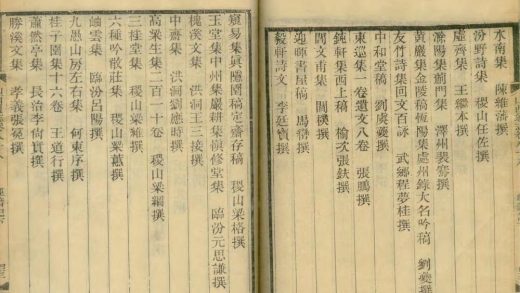 水南集 陳維藩撰
汾野詩集 稷山任佐撰
虛齋集 王繼本撰
滁陽集薊門集 澤州裴騫撰
黃巖集金陵稿恆陽集處州錄大名吟稿 劉夔撰
友竹詩集回文百詠 武鄉程夢桂撰
中和堂稿 劉虞夔撰
東巡集一卷遺文八卷 張鵬撰
鈍軒集西上稿 榆次張鈇撰
閻文甫集 閻樸撰
迎暉書屋稿 馬巒撰
毅軒詩文 李廷寶撰
寔易集興隱園稿定齋存稿 稷山梁格撰
玉堂集中州集嚴耕集嶺修堂集 臨汾元思謙撰
槐溪文集 洪洞王三接撰
中齋集 洪洞劉應時撰
高粟生集二百一十卷 稷山梁綱撰
三桂堂集 稷山梁維撰
六種吟散莊集 稷山梁蕙撰
岫雲集 臨汾呂陽撰
九愚山房左右集 何東序撰
桂子園集十六卷 王道行撰
蕭然亭集 長治李尚實撰
勝溪文集 孝義張冕撰